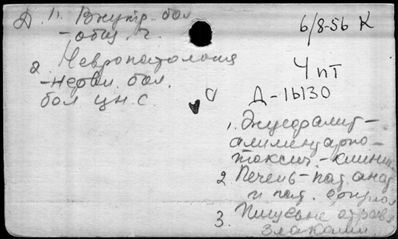 Д. 1. Внутр. бол
- общ. ч.
2 Невропатология
- нервн. бол.
бол ц.н.с.
6/8-56 К
4 пт
Д-16130
1. Энцефалит-
алиментарно-
токсич. - клиник
2 Печень - пат. анат
и пат.
3. Пищевые отравл
злаками